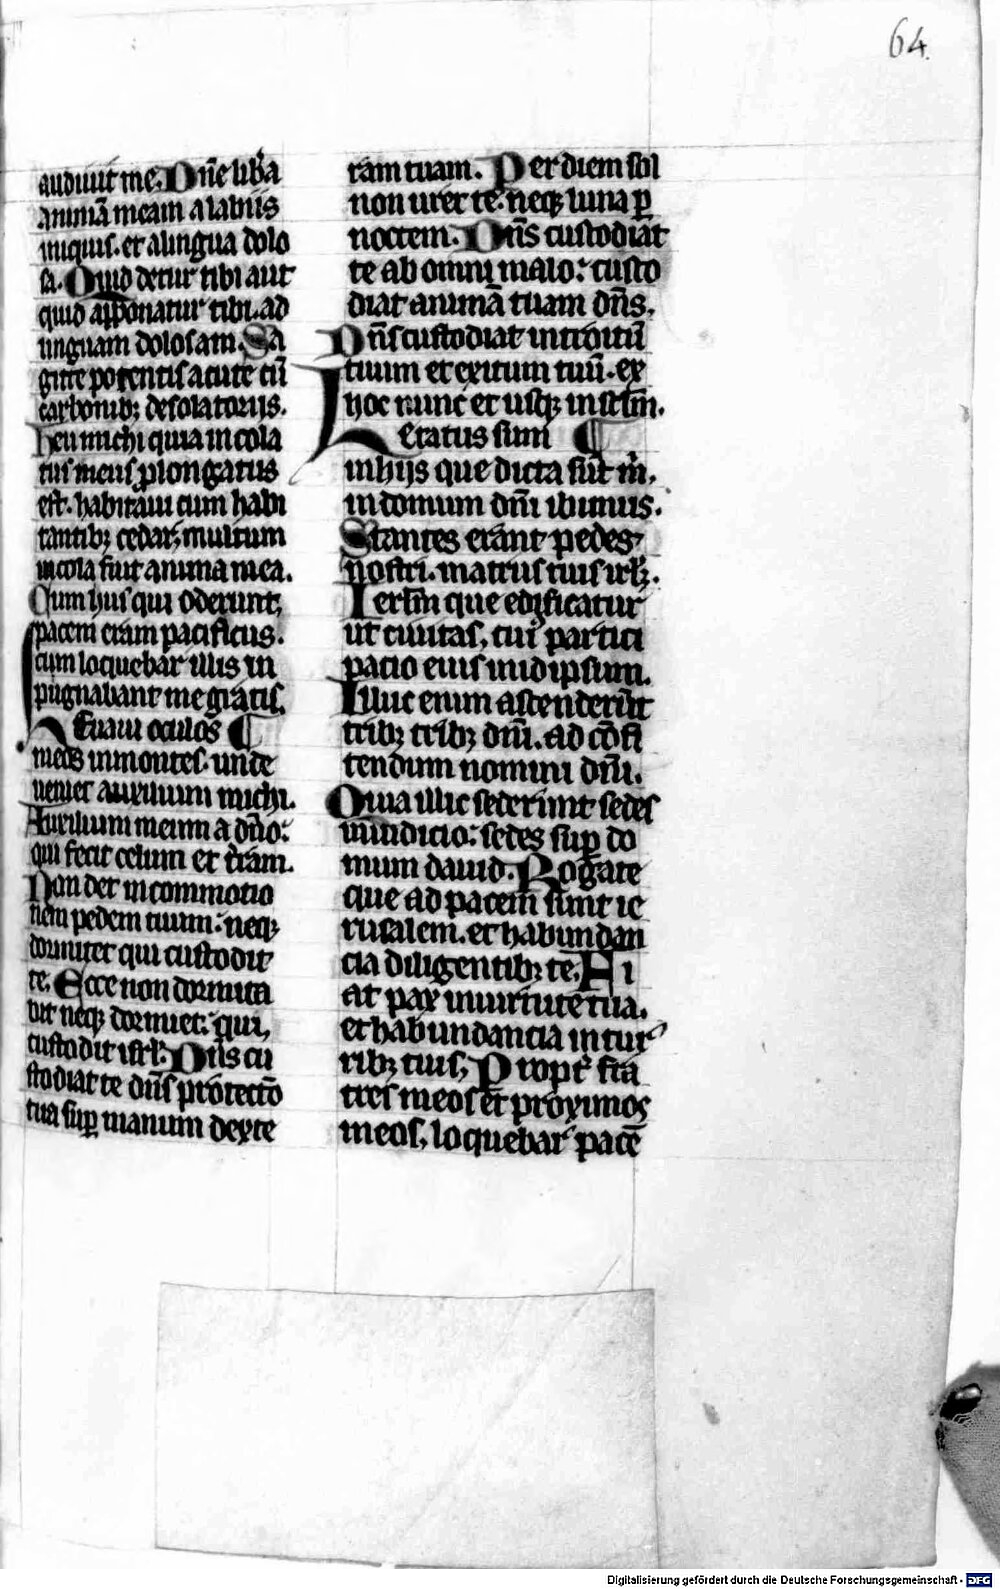 64.
audiuit me. Dn̄e lib̾a
animā meam a labiis
iniquis. et a lingua dolo
sa. Quid detur tibi aut
quid apponatur tibi. ad
linguam dolosam. Sa
gitte potentis acute cū
carbonibꝫ desolatoriis.
Heu michi quia incola
tus meus ꝓlongatus
est. habitaui cum habi
tantibꝫ cedar, multum
incola fuit anima mea.
Cum hiis qui oderunt,
pacem eram pacificus.
cum loquebar illis in
pugnabant me gratis.
Leuaui oculos
meos in montes. unde
ueniet auxilium michi.
Auxilium meum a dn̄o:
qui fecit celum et t̾ram.
Non det in commotio
nem pedem tuum: neqꝫ
dormitet qui custodit
te. Ecce non dormita
bit neqꝫ dormiet: qui,
custodit isrl̄. Dn̄s cu
stodiat te dn̄s protectō
tua suꝑ manum dexte
ram tuam. Per diem sol
non uret te. neqꝫ luna ꝑ
noctem. Dn̄s custodiat
te ab omni malo: custo
diat animā tuam dn̄s.
Dn̄s custodiat introitū
tuum et exitum tuū. ex
hoc nunc et usqꝫ in sclm̄.
Letatus sum
in hijs que dicta sūt m̄.
in domum dn̄i ibimus.
Stantes erant pedes
nostri. in atriis tuis irlꝫ.
Ierlm̄ que edificatur
ut ciuitas, cui partici
patio eius in idipsum.
Illuc enim ascenderūt
tribꝫ tribꝫ dn̄i. ad cōfi
tendum nomini dn̄i.
Quia illic sederunt sedes
in iudicio: sedes suꝑ do
mum dauid. Rogate
que ad pacem sunt ie
rusalem. et habundan
cia diligentibꝫ te. Fi
at pax in uirtute tua.
et habundancia in tur
ribꝫ tuis, Propt̾ fra
tres meos et proximos
meos, loquebar pacē
Digitalisierung gefördert durch die Deutsche Forschungsgemeinschaft - DFG